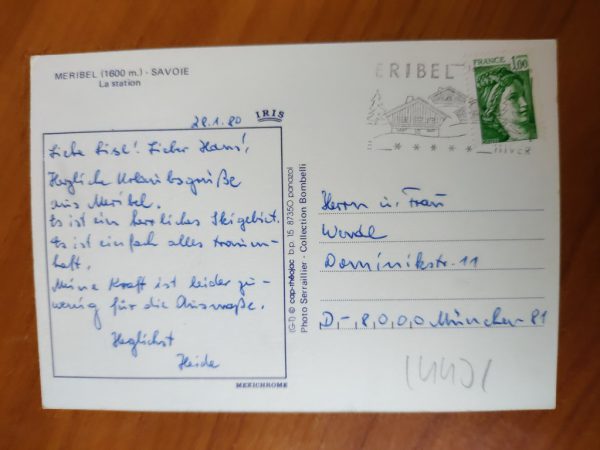 MERIBEL (1600 m.) - SAVOIE
La station
28.1.80
IRIS
Liebe Lise! Lieber Hans!
Herzliche Urlaubsgrüße
aus Meribel.
Es ist ein herrliches Skigebiet.
Es ist einfach alles traum-
haft.
Meine Kraft ist leider zu-
wenig für die Ausmaße.
Herzlichst
Heide
MEXICHROME
(G-1) © cap-théojac b.p. 15 87350 panazol
Photo Serraillier - Collection Bombelli
ERIBEL
FRANCE 1,00
Herrn u. Frau
Dominikstr. 11
D-8000 München 81